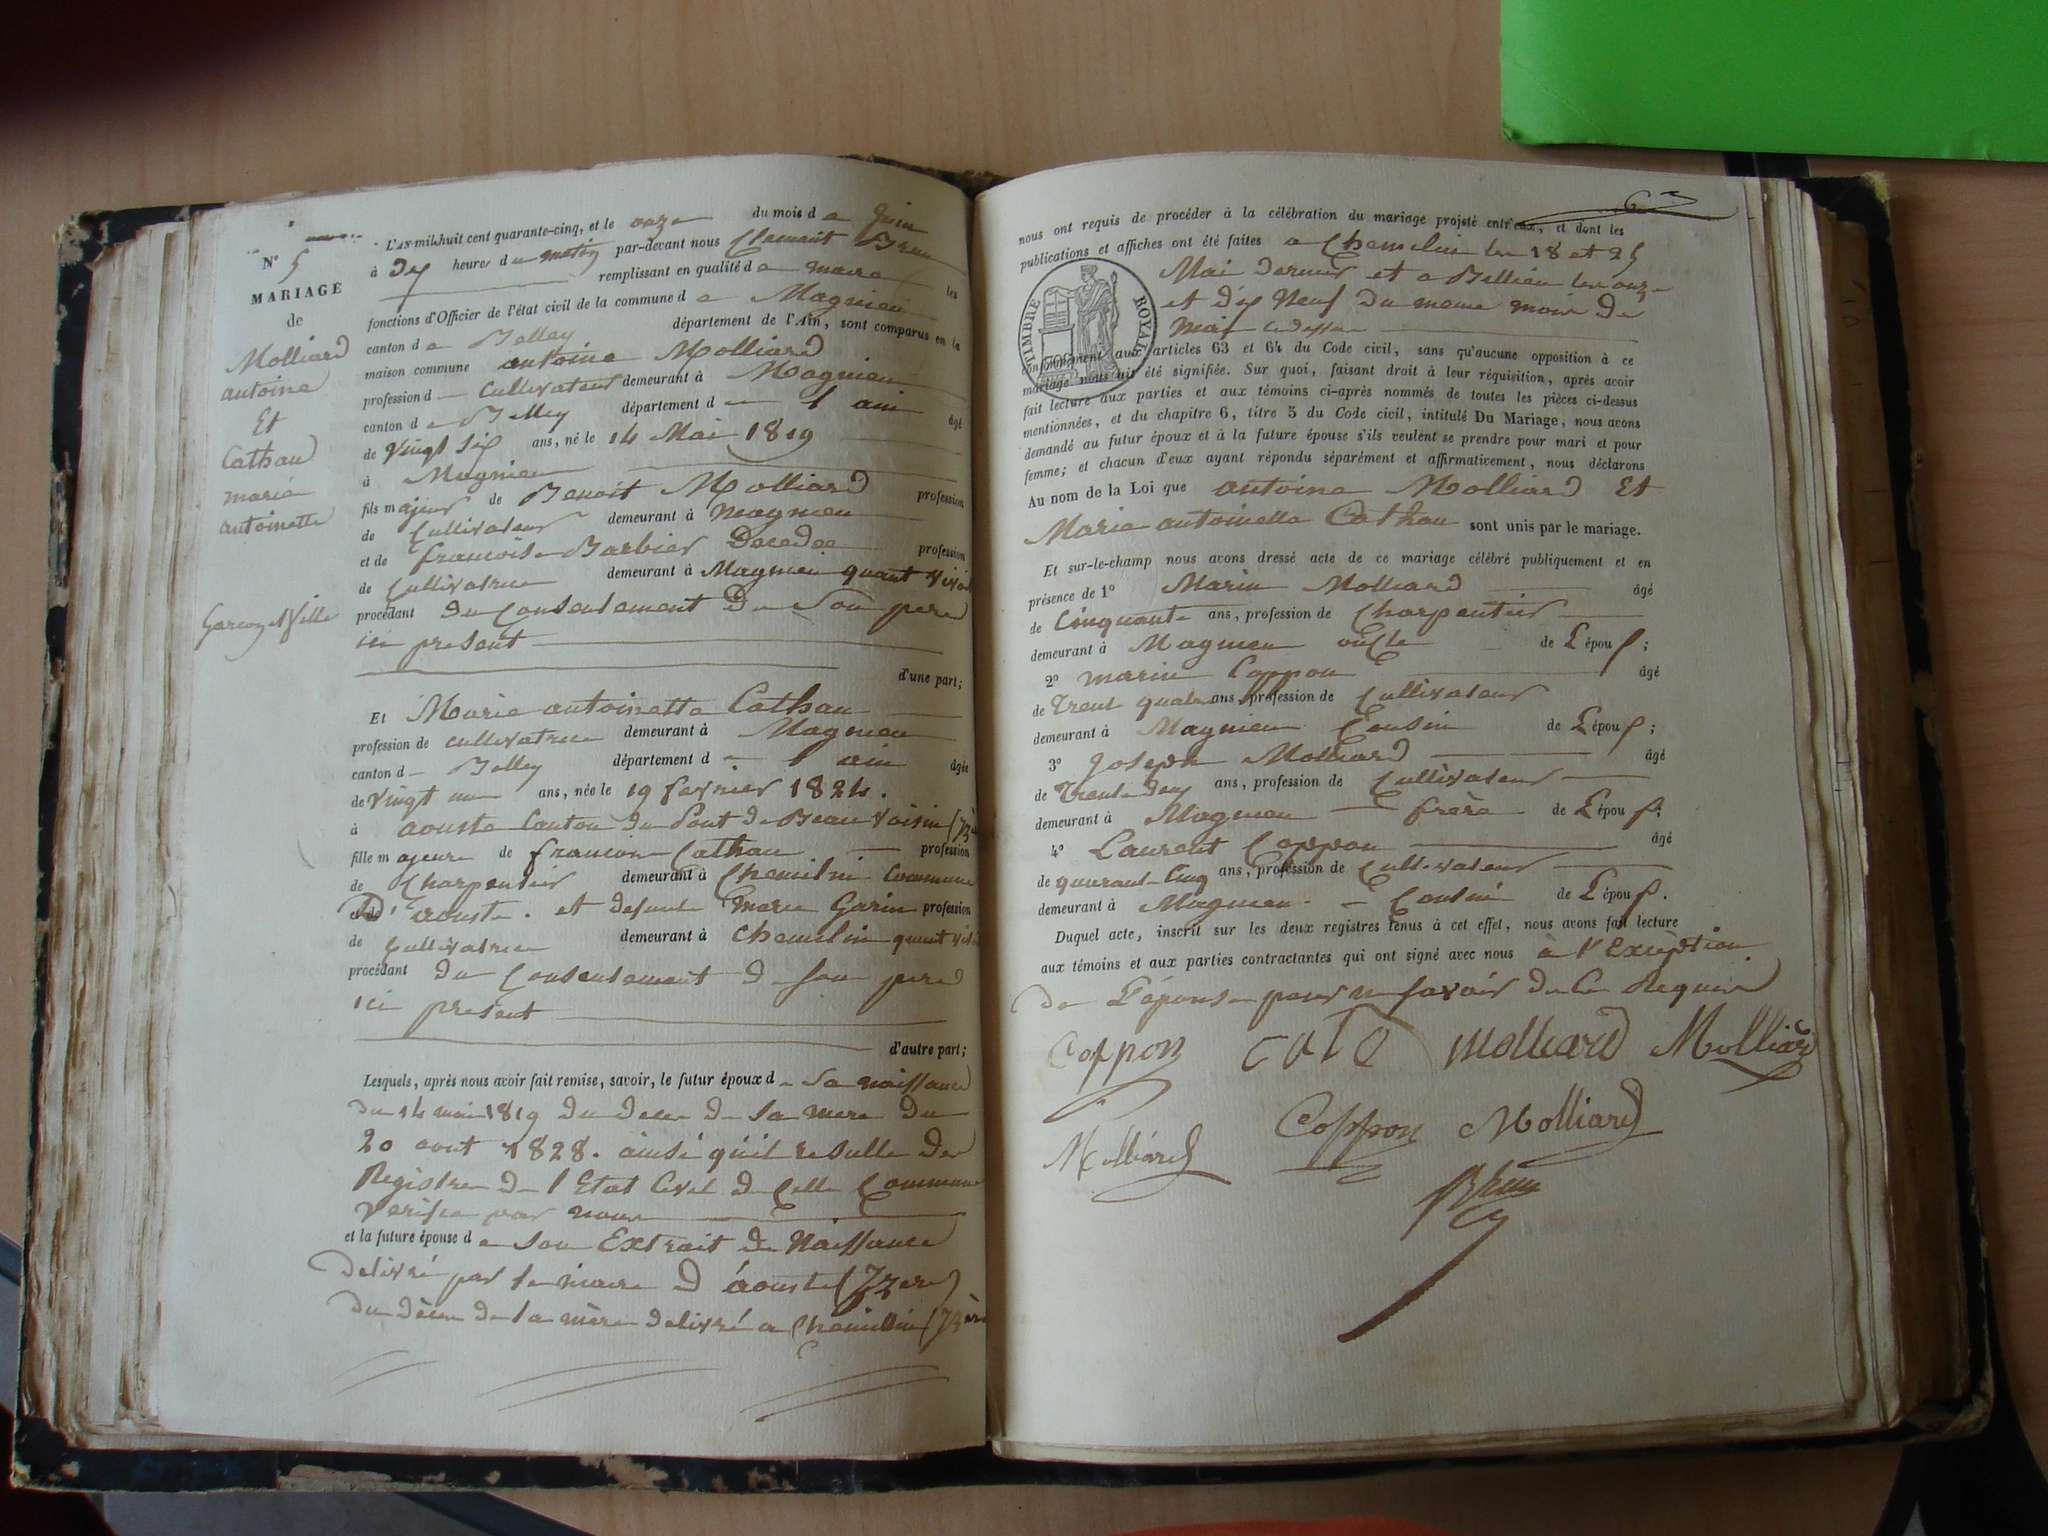 N° 5
MARIAGE
de
Molliard
antoine
Et
Cathau
marie
antoinette
Garçon et fille
L'AN mil huit cent quarante-cinq, et le onze du mois d e Juin
à dix heures d u matin par-devant nous Clement Brun
remplissant en qualité d e maire les
fonctions d'Officier de l'état civil de la commune d e Magnieu
canton d e Belley département de l'Ain, sont comparus en la
maison commune antoine Molliard
profession d cultivateur demeurant à Magnieu
canton d e Belley département d e l ain âgé
de vingt six ans, né le 14 Mai 1819
à Magnieu
fils majeur de Benoit Molliard profession
de Cultivateur demeurant à magnieu
et de francoise Barbier Decedee profession
de Cultivatrice demeurant à Magnieu quant vivoit
procédant du Consentement de Son pere
ici present
d'une part;
Et Marie antoinette Cathau
profession de cultivatrice demeurant à Magnieu
canton d e Belley département d e l ain âgée
de vingt un ans, née le 19 fevrier 1824.
à aouste Canton du Pont de Beau Voisin
fille majeure de francois Cathau profession
de Charpentier demeurant à Chemilin Commune
d'aouste. et defunte Marie Garin profession
de Cultivatrice demeurant à Chemilin quant vivoit
procédant du Consentement de son pere
ici present
d'autre part;
Lesquels, après nous avoir fait remise, savoir, le futur époux d e sa naissance
du 14 mai 1819 du deces de sa mere du
20 aout 1828. ainsi qu'il resulte des
Registres de l'Etat Civil de Cette Commune
verifiee par nous
et la future épouse d e son Extrait de Naissance
delivré par le maire d'aouste (Izere)
du dèces de la mère delivré a Chemilin (Izère
nous ont requis de procéder à la célébration du mariage projeté entr'eux, et dont les
publications et affiches ont été faites a Chemelin les 18 et 25
Mai dernier et a Bellieu les onze
et dix Neuf du meme mois de
Mai cy dessus
TIMBRE ROYAL
conformément aux articles 63 et 64 du Code civil, sans qu'aucune opposition à ce
mariage nous ait été signifiée. Sur quoi, faisant droit à leur réquisition, après avoir
fait lecture aux parties et aux témoins ci-après nommés de toutes les pièces ci-dessus
mentionnées, et du chapitre 6, titre 5 du Code civil, intitulé Du Mariage, nous avons
demandé au futur époux et à la future épouse s'ils veulent se prendre pour mari et pour
femme; et chacun d'eux ayant répondu séparément et affirmativement, nous déclarons
Au nom de la Loi que antoine Molliard Et
Marie antoinette Cathau sont unis par le mariage.
Et sur-le-champ nous avons dressé acte de ce mariage célébré publiquement et en
présence de 1° Marin Molliard âgé
de Cinquante ans, profession de Charpentier
demeurant à Magnieu oncle de l'époux;
2° marin Coppon âgé
de Trent quatre ans, profession de Cultivateur
demeurant à Magnieu Cousin de l'époux;
3° Joseph Molliard âgé
de Trente deux ans, profession de Cultivateur
demeurant à Magnieu frère de l'époux;
4° Laurent Coppon âgé
de quarant-Cinq ans, profession de Cultivateur
demeurant à Magnieu. Cousin de l'époux.
Duquel acte, inscrit sur les deux registres tenus à cet effet, nous avons fait lecture
aux témoins et aux parties contractantes qui ont signé avec nous à l'Exception
de l'épouse pour ne savoir de Ce Requise
Coppon Molliard Molliard
Molliard Coppon Molliard
Brun